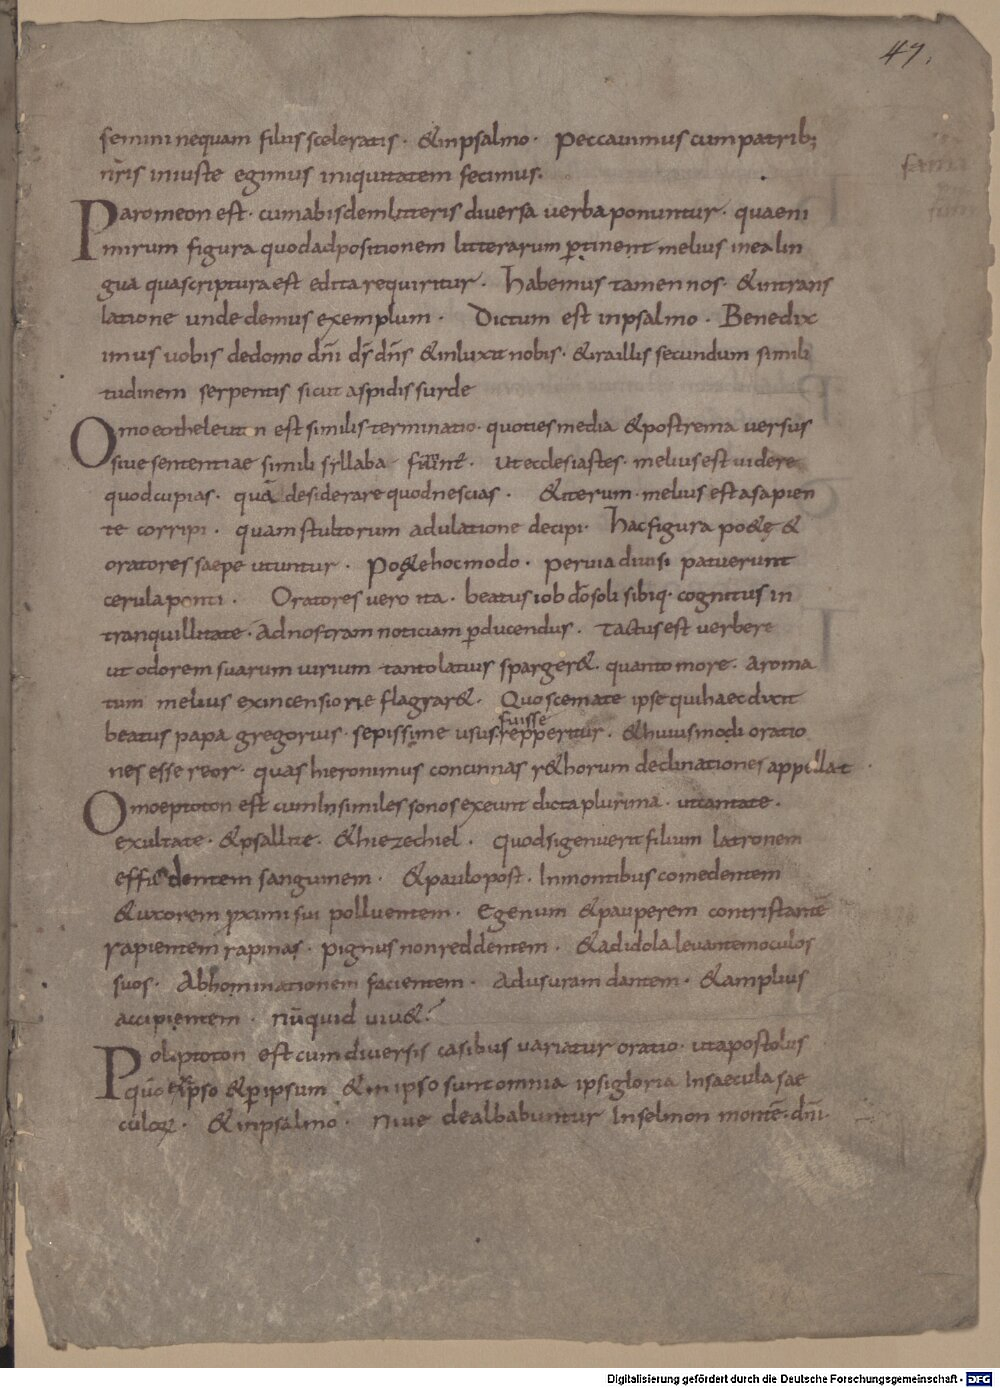 47.
semini nequam filiis sceleratis · & in psalmo · Peccauimus cum patrib;
nr̄is iniuste egimus iniquitatem fecimus.
Paromeon est · cum ab isdem litteris diuersa uerba ponuntur · quae ni
mirum figura quod ad positionem litterarum ꝑtinent melius in ea lin
gua qua scriptura est edita requiritur · habemus tamen nos · & in trans
latione unde demus exemplum · Dictum est in psalmo · Benedix
imus uobis de domo dn̄i ds̄ dn̄s & inluxit nobis · & ira illis secundum simili
tudinem serpentis sicut aspidis surde
Omoeotheleuton est similis terminatio · quoties media & postrema uersus
siue sententiae simili syllaba · ut ecclesiastes · melius est uidere
quod cupias · quā desiderare quod nescias · & iterum · melius est a sapien
te corripi · quam stultorum adulatione decipi · hac figura po&ę &
oratores saepe utuntur · Po&ę hoc modo · peruia diuisi patuerunt
cerula ponti · Oratores uero ita · beatus iob dō soli sibiq · cognitus in
tranquillitate · ad nostram noticiam ꝑducendus · tactus est uerbere
ut odorem suarum uirium tanto latius sparger& · quanto more · aroma
tum melius ex incensione flagrar& · Quo scemate ipse qui haec dixit
fuisse
beatus papa gregorius · sepissime usus repperitur · & huiusmodi oratio
nes esse reor · quas hieronimus concinnas r&horum declinationes appellat ·
Omoeptoton est cum In similes sonos exeunt dicta plurima · ut cantate ·
exultate · & psallite · & hiezechiel · quod si genuerit filium latronem
effundentem sanguinem · & paulo post · In montibus comedentem
& uxorem ꝓximi sui polluentem · Egenum & pauperem contristantē
rapientem rapinas · pignus non reddentem · & ad idola leuantem oculos
suos · Abhominationem facientem · Ad usuram dantem · & amplius
accipientem · nūquid uiu&?
Poliptoton est cum diuersis casibus uariatur oratio · ut apostolus
quō ex ipso & ꝑ ipsum & in ipso sunt omnia ipsi gloria In saecula sae
culoꝝ · & in psalmo · niue dealbabuntur In selmon montē · dn̄i ·
Digitalisierung gefördert durch die Deutsche Forschungsgemeinschaft - DFG